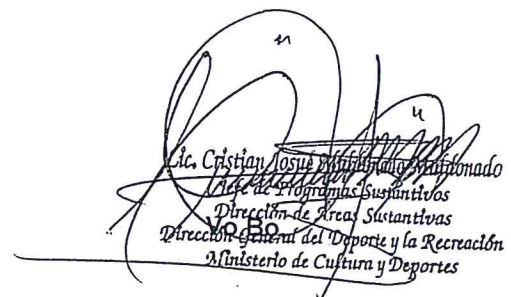 Lic. Cristian Josué Maldonado
Jefe de Programas Sustantivos
Dirección de Areas Sustantivas
Vo.Bo.
Dirección General del Deporte y la Recreación
Ministerio de Cultura y Deportes